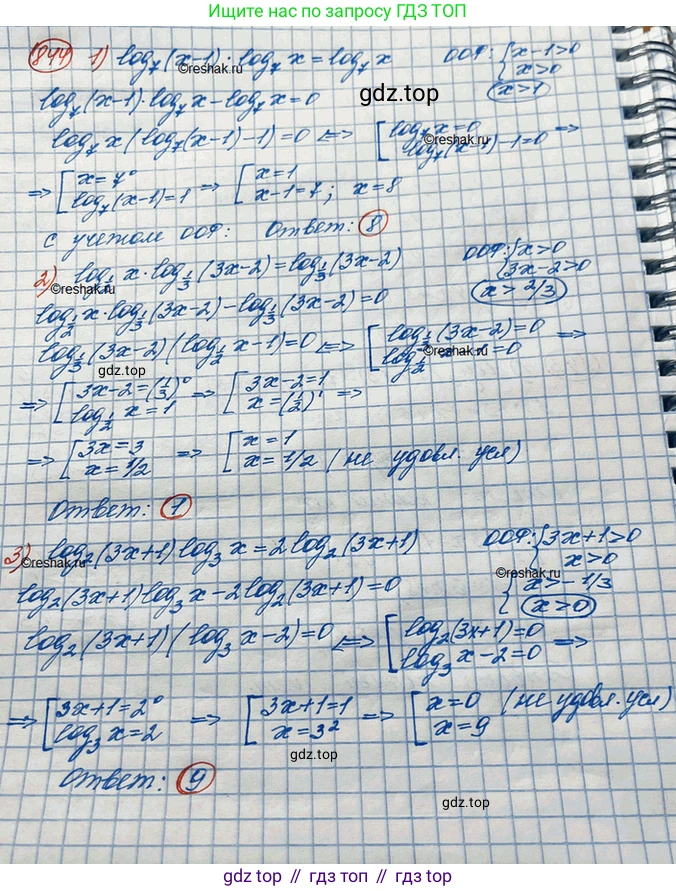 Ищите нас по запросу ГДЗ ТОП
844 1) log₇(x-1)·log₇x=log₇x ООФ: { x-1>0
x>0
x>1
©reshak.ru
log₇(x-1)·log₇x-log₇x=0
gdz.top
log₇x(log₇(x-1)-1)=0 <=> [ log₇x=0
log₇(x-1)-1=0 =>
©reshak.ru
=> [ x=7⁰
log₇(x-1)=1 => [ x=1
x-1=7; x=8
с учетом ООФ: Ответ: 8
2) log_{1/2} x·log_{1/3}(3x-2)=log_{1/3}(3x-2) ООФ: { x>0
3x-2>0
x>2/3
©reshak.ru
log_{1/2} x·log_{1/3}(3x-2)-log_{1/3}(3x-2)=0
log_{1/3}(3x-2)(log_{1/2} x-1)=0 <=> [ log_{1/3}(3x-2)=0
log_{1/2} x-1=0 =>
©reshak.ru
gdz.top
=> [ 3x-2=(1/3)⁰
log_{1/2} x=1 => [ 3x-2=1
x=(1/2)¹ =>
=> [ 3x=3
x=1/2 => [ x=1
x=1/2 (не удовл. усл)
Ответ: 1
3) log₂(3x+1)log₃x=2log₂(3x+1) ООФ: { 3x+1>0
x>0
{ x>-1/3
x>0
©reshak.ru
©reshak.ru
log₂(3x+1)log₃x-2log₂(3x+1)=0
log₂(3x+1)(log₃x-2)=0 <=> [ log₂(3x+1)=0
log₃x-2=0 =>
=> [ 3x+1=2⁰
log₃x=2 => [ 3x+1=1
x=3² => [ x=0 (не удовл. усл)
x=9
gdz.top
Ответ: 9
gdz.top
gdz.top // гдз топ // гдз.top